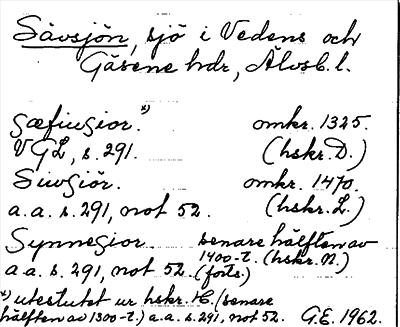 Sävsjön, sjö i Vedens och
Gäsene hdr, Älvsb. l.
Sæfiugior.*) omkr. 1325.
VGL, s. 291. (hskr. D.)
Siugiör. omkr. 1470.
a.a. s. 291, not 52. (hskr. L.)
Synnegior senare hälften av
1400-t. (hskr. N.)
a a. s. 291, not 52. (forts.)
*) uteslutet ur hskr. H. (senare
hälften av 1300-t.) a.a. s. 291, not 52. G.E. 1962.